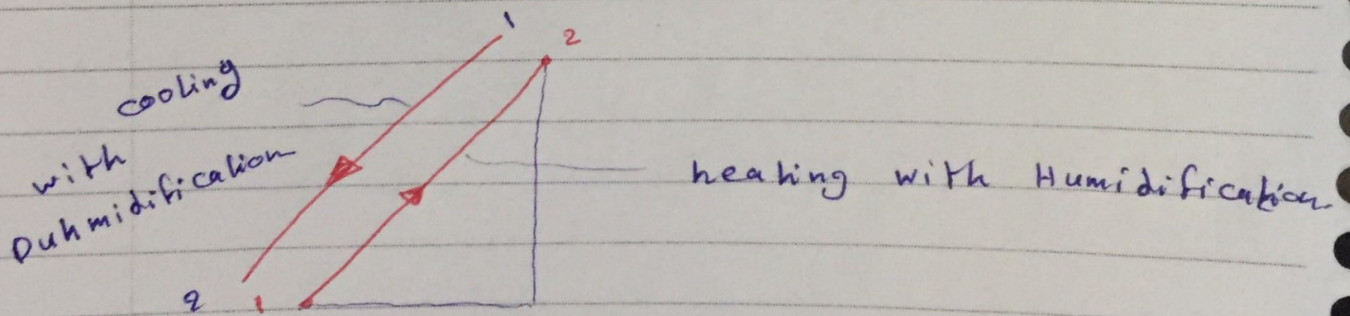 1
2
cooling
with
Duhmidification
heating with Humidification.
2 1